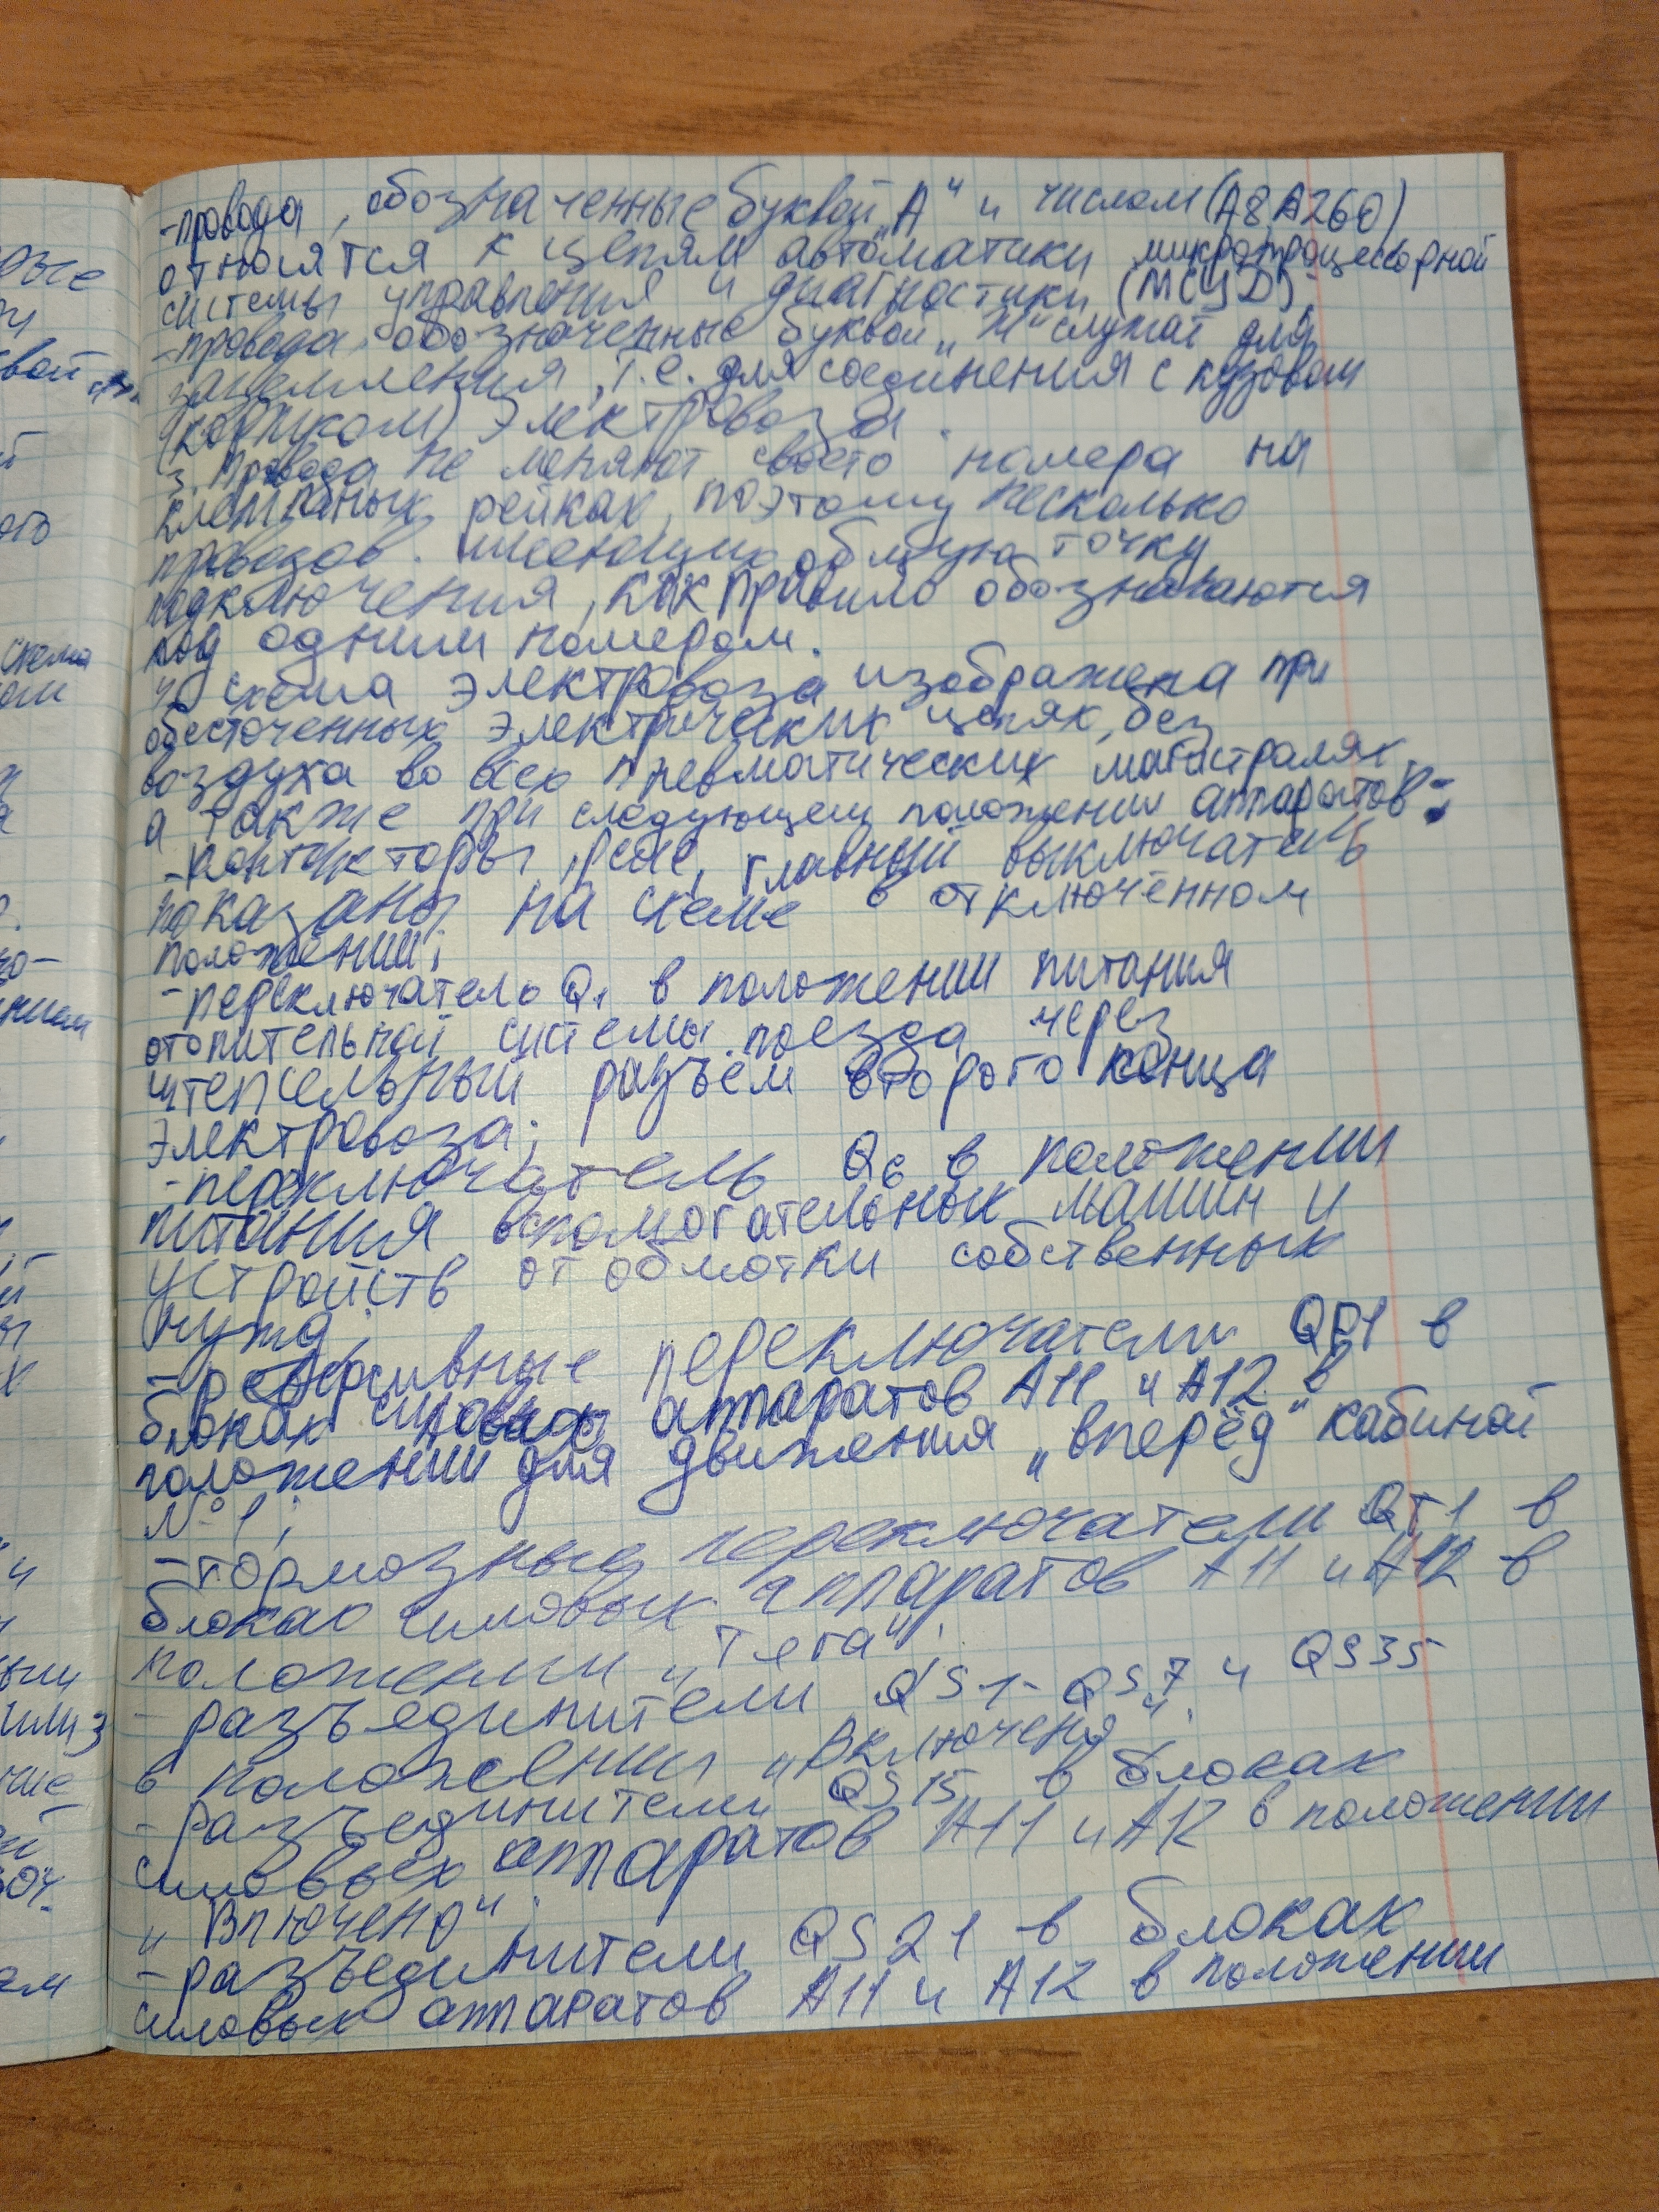 -провода, обозначенные буквой „А“ и числом (А8, А260)
относятся к цепям автоматики микропроцессорной
системы управления и диагностики (МСУД);
-провода, обозначенные буквой „Ж“ служат для
заземления, т.е. для соединения с кузовом
(корпусом) электровоза.
3. Провода не меняют своего номера на
клеммных рейках, поэтому несколько
проводов. имеющих общую точку
подключения, как правило обозначаются
под одним номером.
4. схема электровоза изображена при
обесточенных электрических цепях, без
воздуха во всех пневматических магистралях,
а также при следующем положении аппаратов:
-контакторы, реле, главный выключатель
показаны на схеме в отключенном
положении;
-переключатель Q1 в положении питания
отопительной системы поезда через
штепсельный разъем второго конца
электровоза;
-переключатель Q6 в положении
питания вспомогательных машин и
устройств от обмотки собственных
нужд;
-реверсивные переключатели QP1 в
блоках силовых аппаратов А11 и А12 в
положении для движения „вперёд“ кабиной
№1;
-тормозные переключатели QT1 в
блоках силовых аппаратов А11 и А12 в
положении „Тяга“;
- разъединители QS1-QS7 и QS35
в положении „Включено“;
- разъединители QS15 в блоках
силовых аппаратов А11 и А12 в положении
„Включено“;
- разъединители QS21 в блоках
силовых аппаратов А11 и А12 в положении